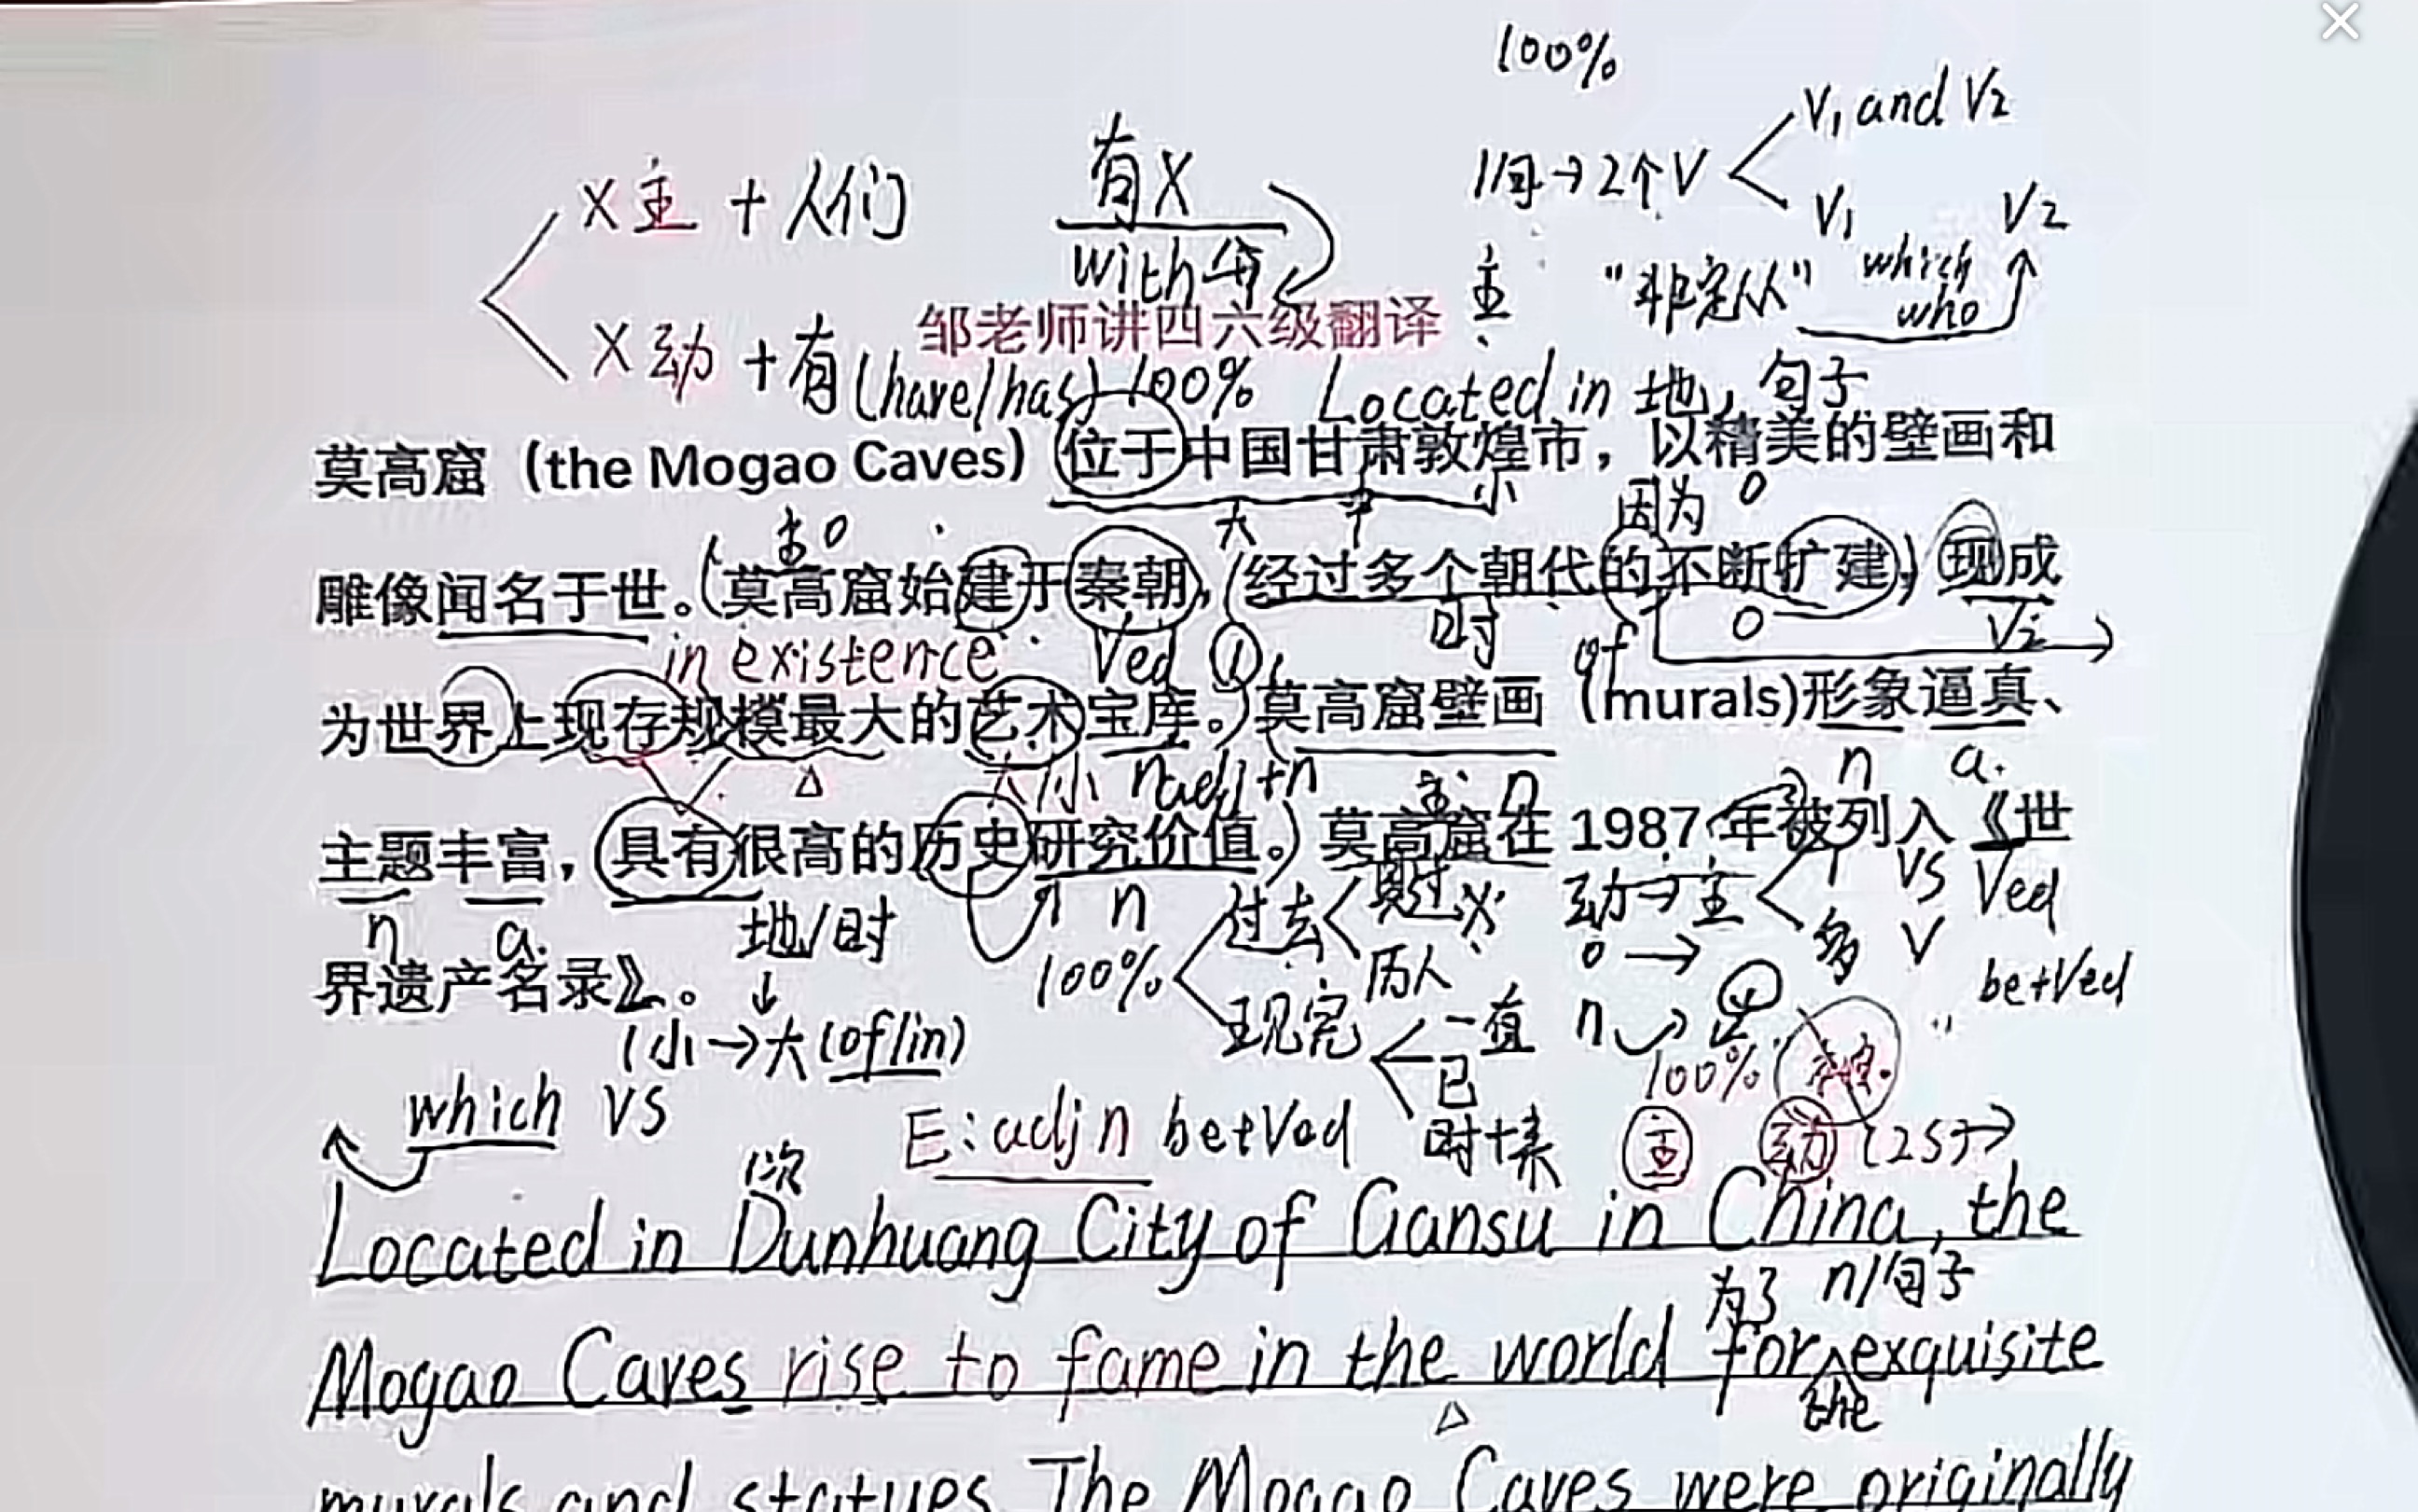 100%
V₁ and V₂
X主 + 人们
有X
1句→2个V
V₁ which V₂
with
主
"非定从"
who
邹老师讲四六级翻译
X动 + 有(have/has) 100%
Located in 地, 句子
莫高窟 (the Mogao Caves) 位于中国甘肃敦煌市，以精美的壁画和
大 中 小
因为
主
雕像闻名于世。(莫高窟始建于秦朝，经过多个朝代的不断扩建，现成
in existence
Ved ①
时
of
V₂
为世界上现存规模最大的艺术宝库。)莫高窟壁画 (murals)形象逼真、
大/小 n adj+n
主 n
n a.
主题丰富，具有很高的历史研究价值。) 莫高窟在 1987 年被列入《世
n a.
地/时
n
过去
动→主
1 VS Ved
多 V
界遗产名录》。
↓
100%
历人
be+Ved
(小→大(of/in)
现完
一直
已
n
100%
which VS
E: adj n be+Ved
时+来
主 动 (25)→
1次
Located in Dunhuang City of Gansu in China, the
为了 n/句子
Mogao Caves rise to fame in the world for exquisite
the
murals and statues. The Mogao Caves were originally